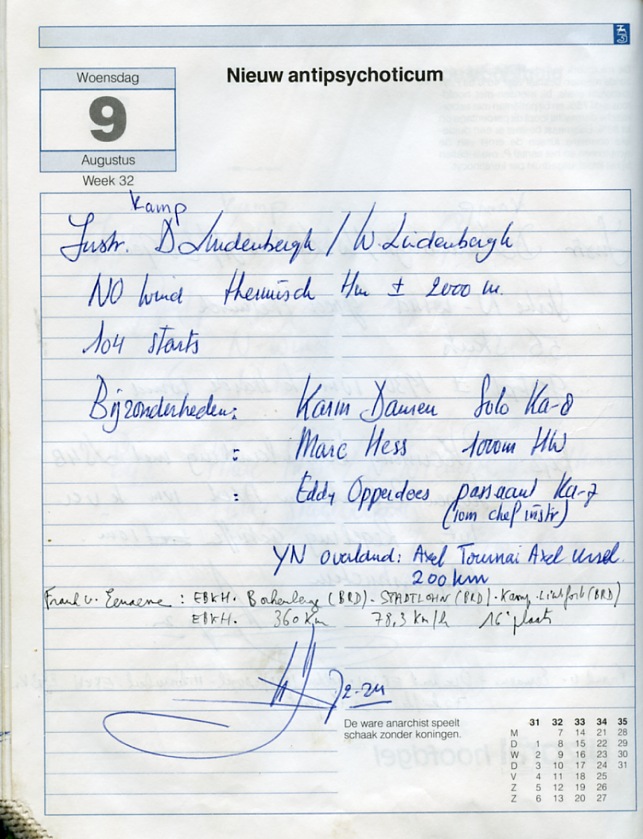 Nieuw antipsychoticum
Woensdag
9
Augustus
Week 32
Kamp
Instr. D Lindenbergh / W. Lindenbergh
NO wind thermisch Hm ± 2000 m.
104 starts
Bijzonderheden: Karin Damen Solo Ka-8
: Marc Hess 1000m HW
: Eddy Opperdoes passant Ka-7
(iom chef instr)
YN overland: Axel Tournai Axel Ursel.
200 km
: EBKH. (BRD) - STADTLOHN (BRD) - Kamp-Lintfort (BRD)
EBKH. 360 km 78,3 km/h 16e plaats
De ware anarchist speelt
schaak zonder koningen.
31 32 33 34 35
M 7 14 21 28
D 1 8 15 22 29
W 2 9 16 23 30
D 3 10 17 24 31
V 4 11 18 25
Z 5 12 19 26
Z 6 13 20 27